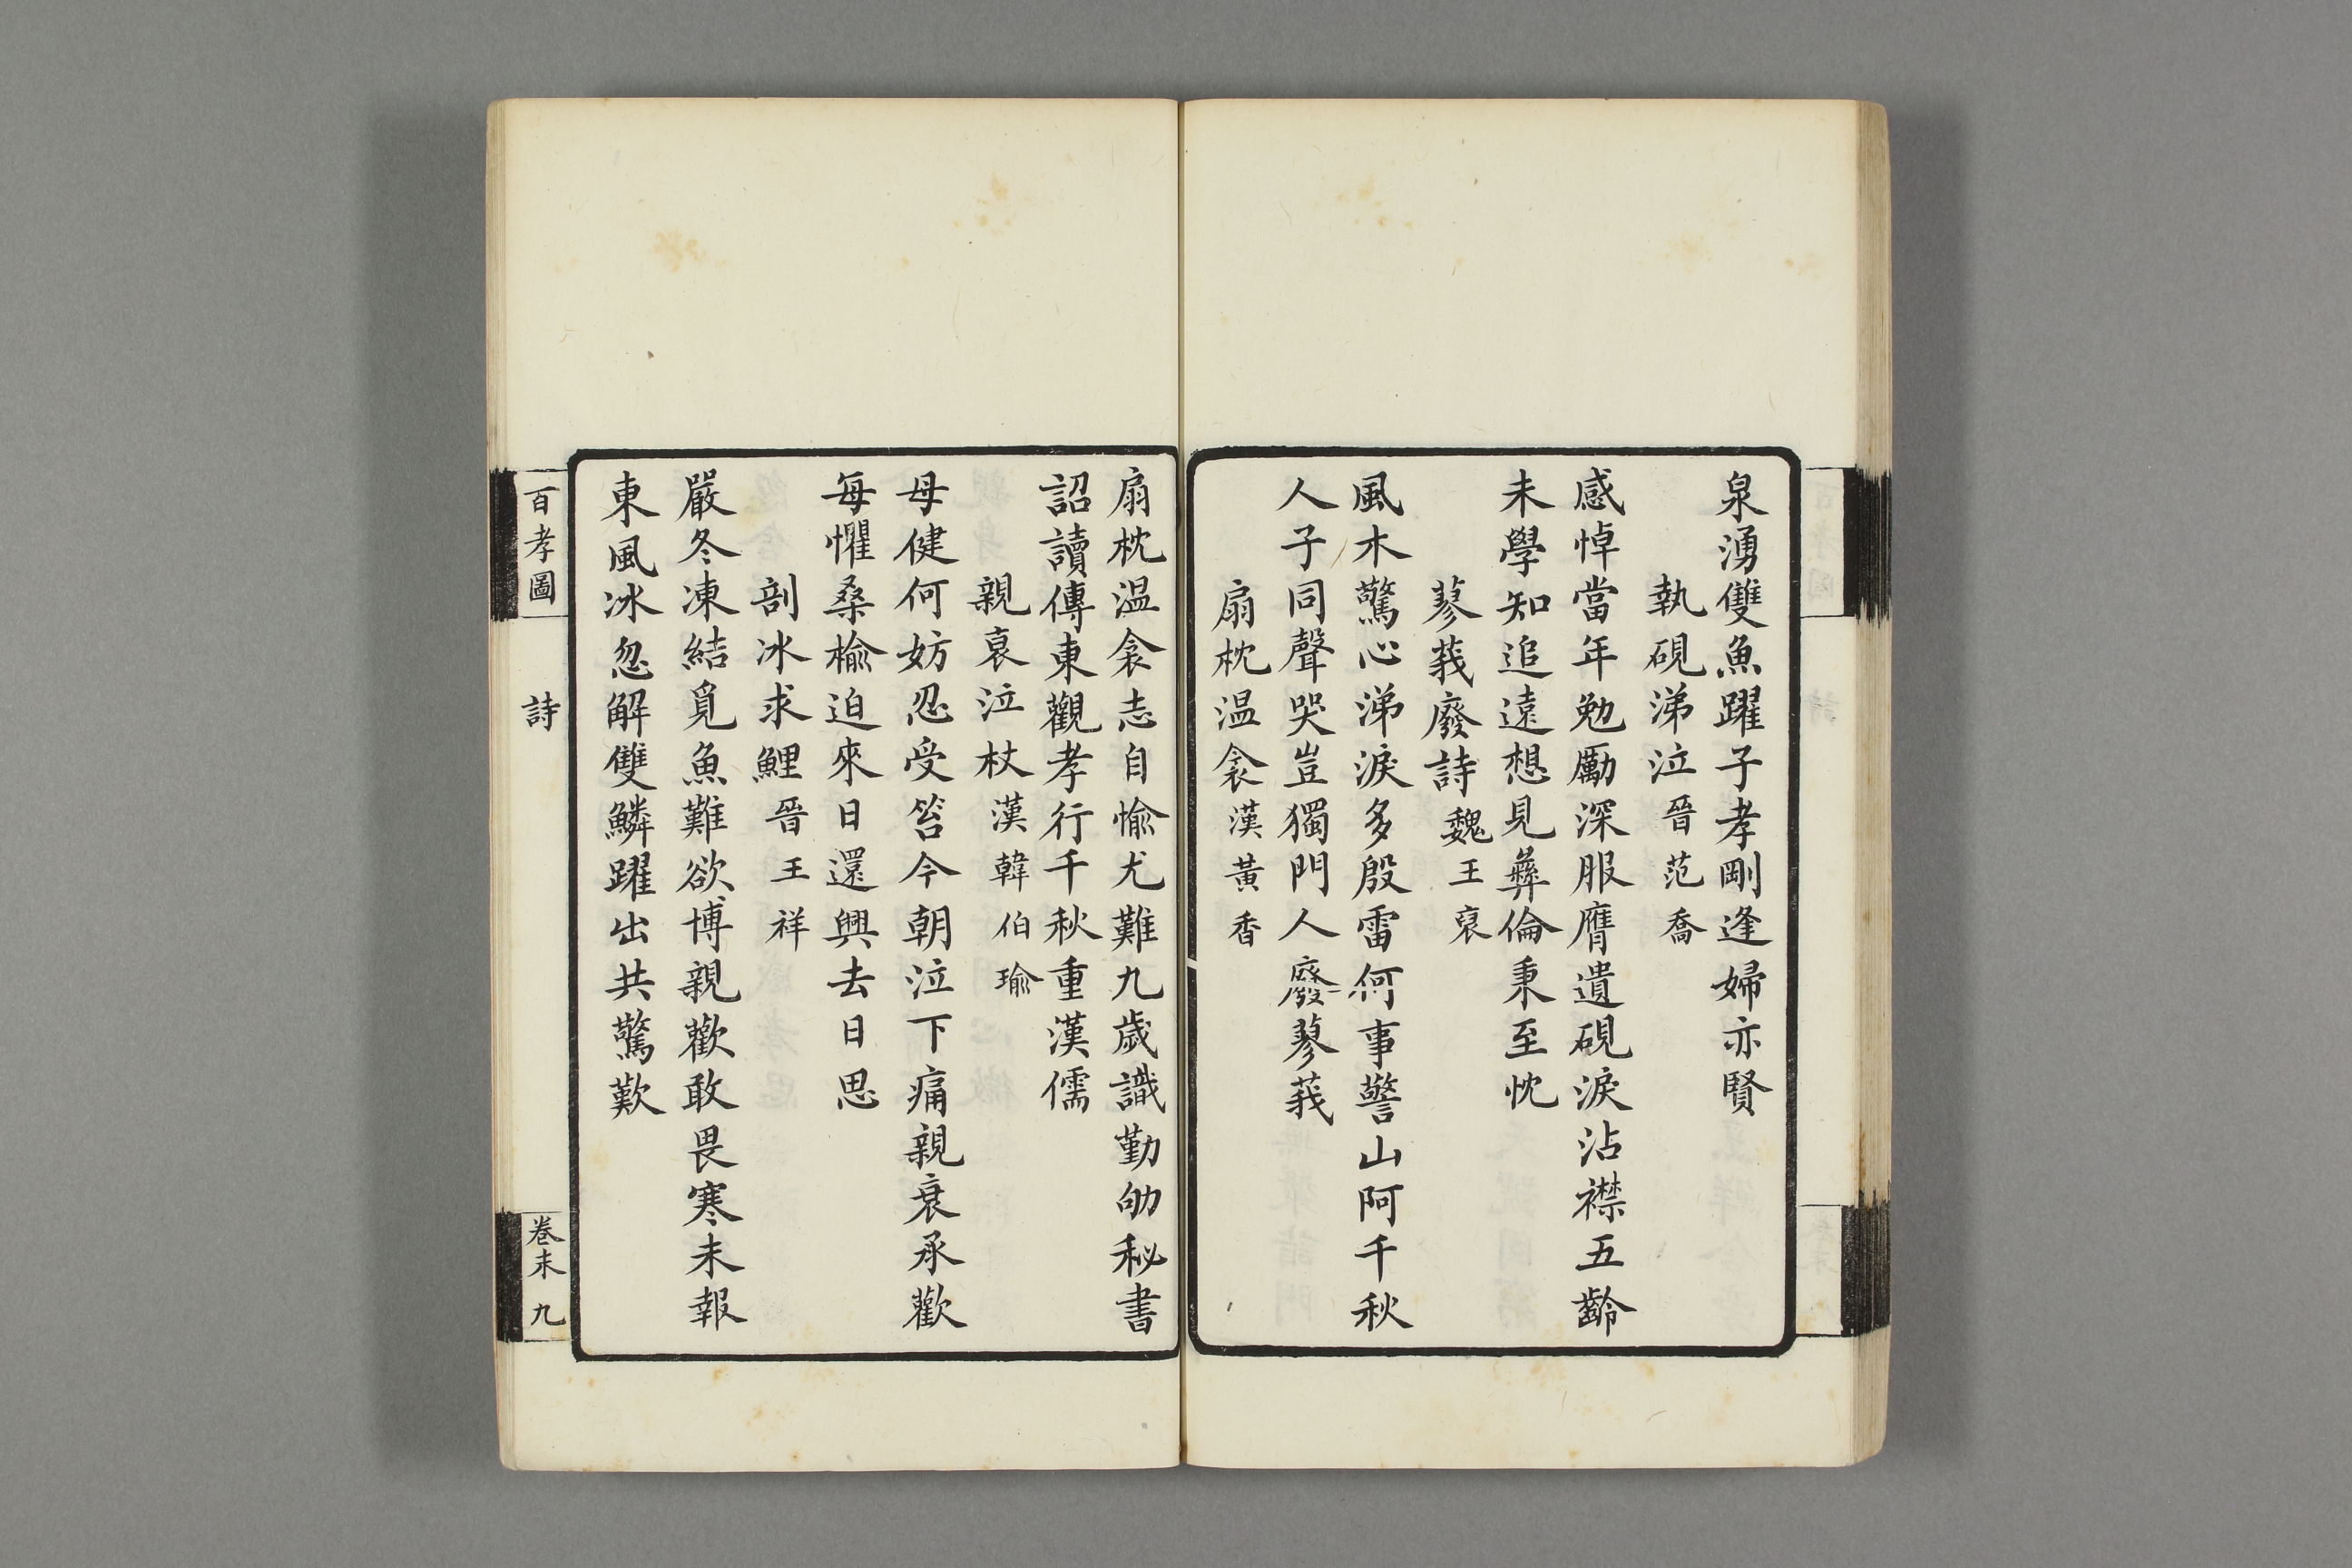 泉湧雙魚躍子孝剛逢婦亦賢
執硯涕泣晉范喬
感悼當年勉勵深服膺遺硯淚沾襟五齡
未學知追遠想見彝倫秉至忱
蓼莪廢詩魏王裒
風木驚心涕淚多殷雷何事警山阿千秋
人子同聲哭豈獨門人廢蓼莪
扇枕温衾漢黃香
扇枕温衾志自愉尤難九歲識勤劬秘書
詔讀傳東觀孝行千秋重漢儒
親衰泣杖漢韓伯瑜
母健何妨忍受笞今朝泣下痛親衰承歡
每懼桑榆迫來日還興去日思
剖冰求鯉晉王祥
嚴冬凍結覓魚難欲博親歡敢畏寒未報
東風冰忽解雙鱗躍出共驚歎
百孝圖 詩 卷末 九